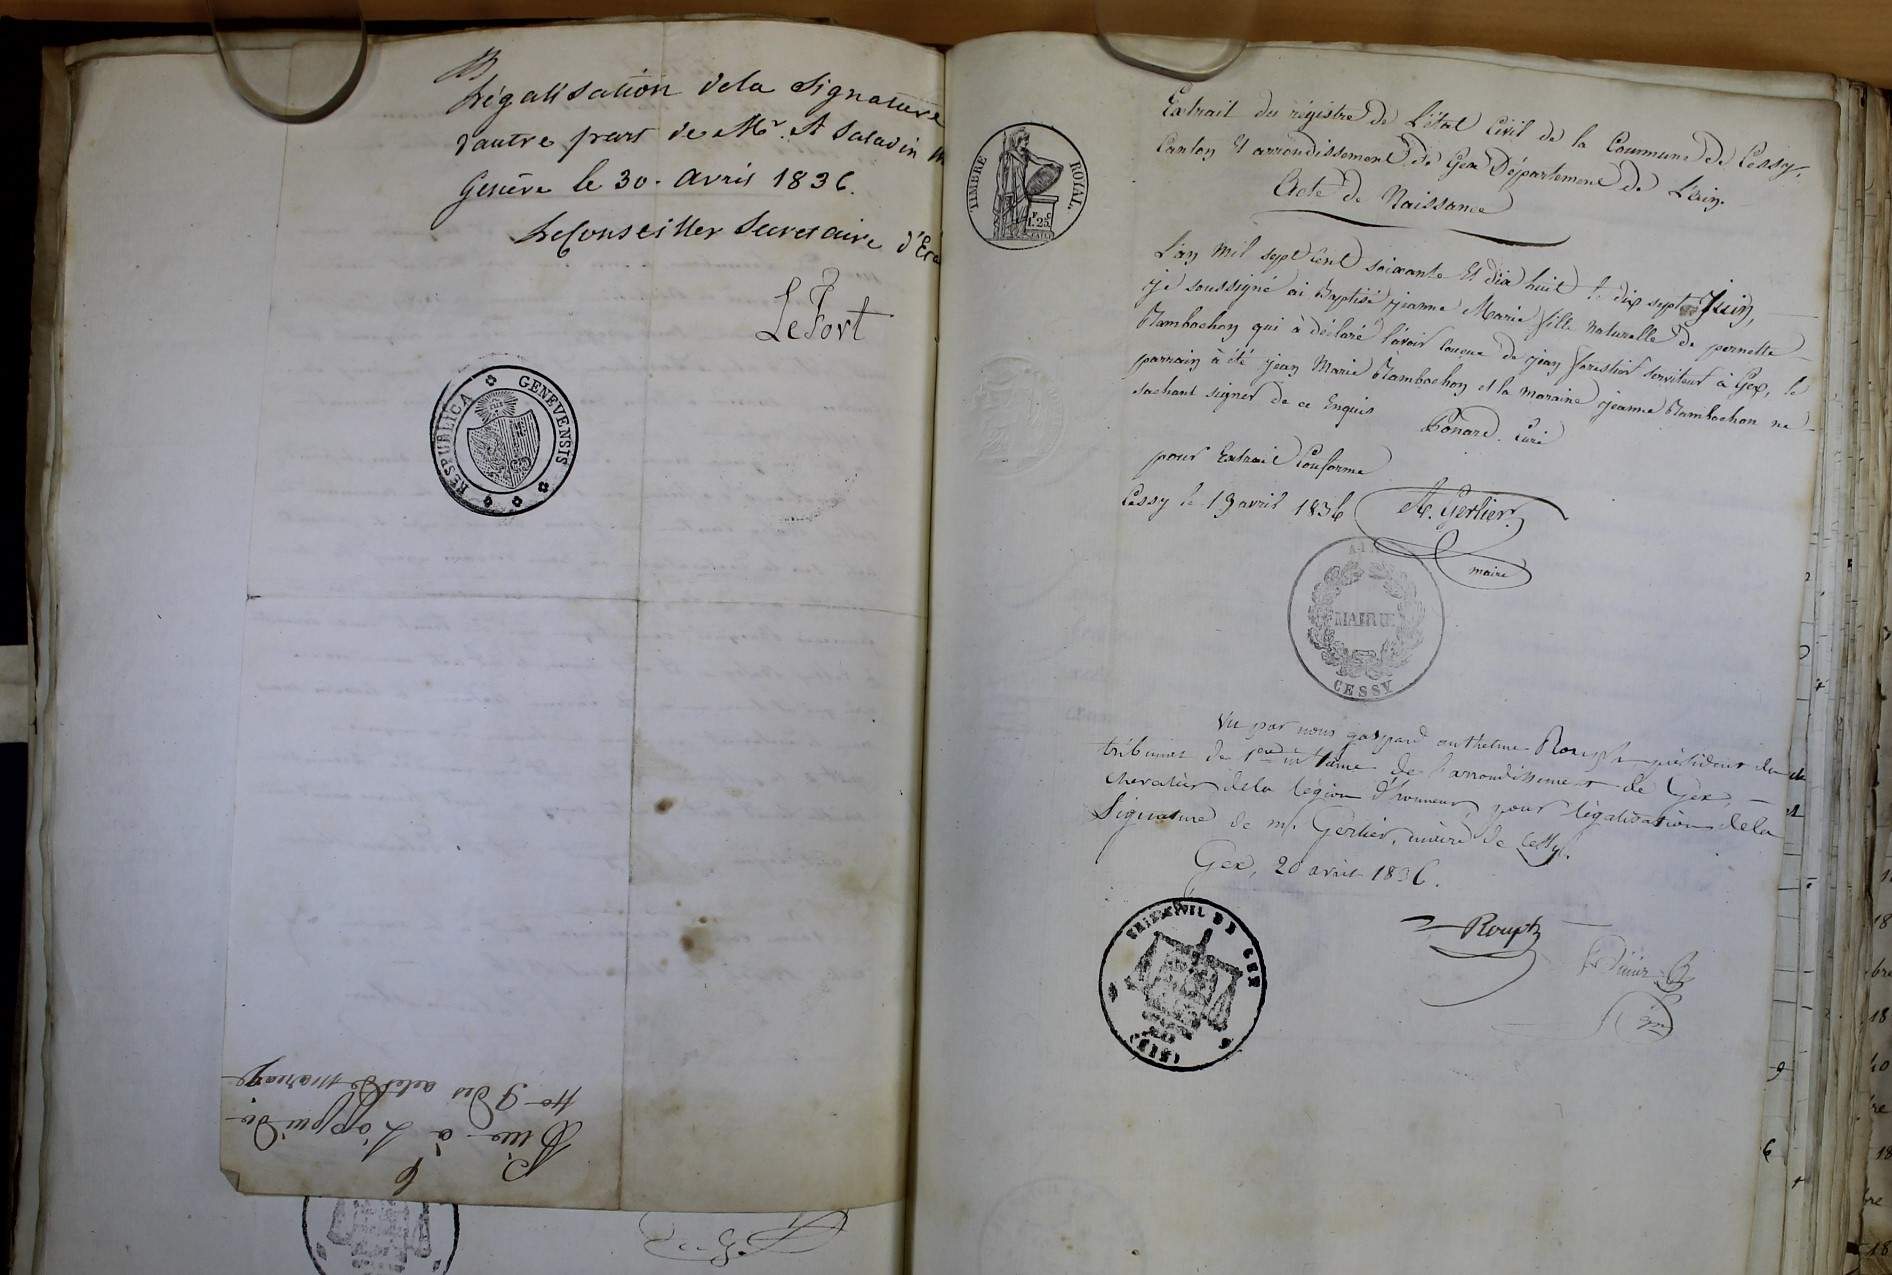 Légalisation dela Signature
d'autre part de Mr. A Saladin
Genève le 30. Avril 1836.
Le Conseiller Secretaire d'Eta
Le Fort
RESPUBLICA GENEVENSIS
Pièce à L'appui du
No 9 des actes de mariage
6
TIMBRE ROYAL
1.25
Extrait du régistre de L'état Civil de la Commune de Cessy,
Canton Et arrondissement de Gex Département de L'ain.
Acte de Naissance
L'an mil sept cent soixante Et dix huit le dix sept Juin,
je soussigné ai Baptisé jeanne Marie fille naturelle de pernette
Rambochon qui à déclaré l'avoir Conçue de jean forestier Serviteur à Gex, le
parrain à été jean Marie Rambochon et la maraine jeanne Rambochon ne
sachant signer de ce Enquis
Ponard. Curé
pour Extrait Conforme
Cessy le 19 avril 1836
A. Gerlier
maire
MAIRIE
CESSY
Vu par nous gaspard anthelme Rouph président du
tribunal de 1ere instance de l'arrondissement de Gex,
chevalier dela légion d'honneur pour légalisation dela
Signature de mr. Gerlier, maire de Cessy.
Gex, 20 avril 1836.
Rouph
TRIB. CIVIL DE GEX